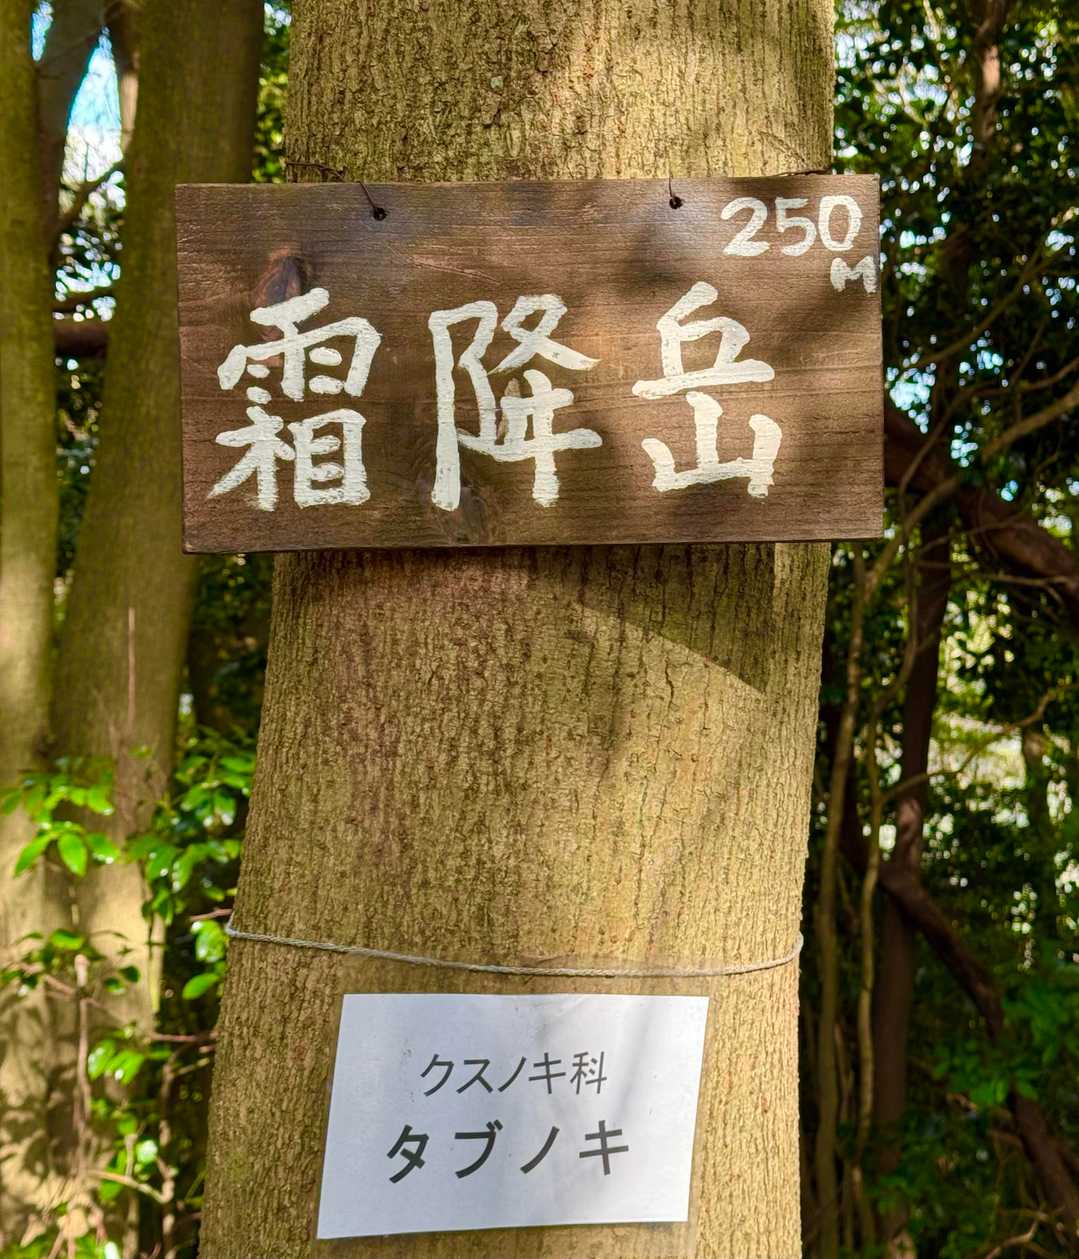 250
M
霜降岳
クスノキ科
タブノキ